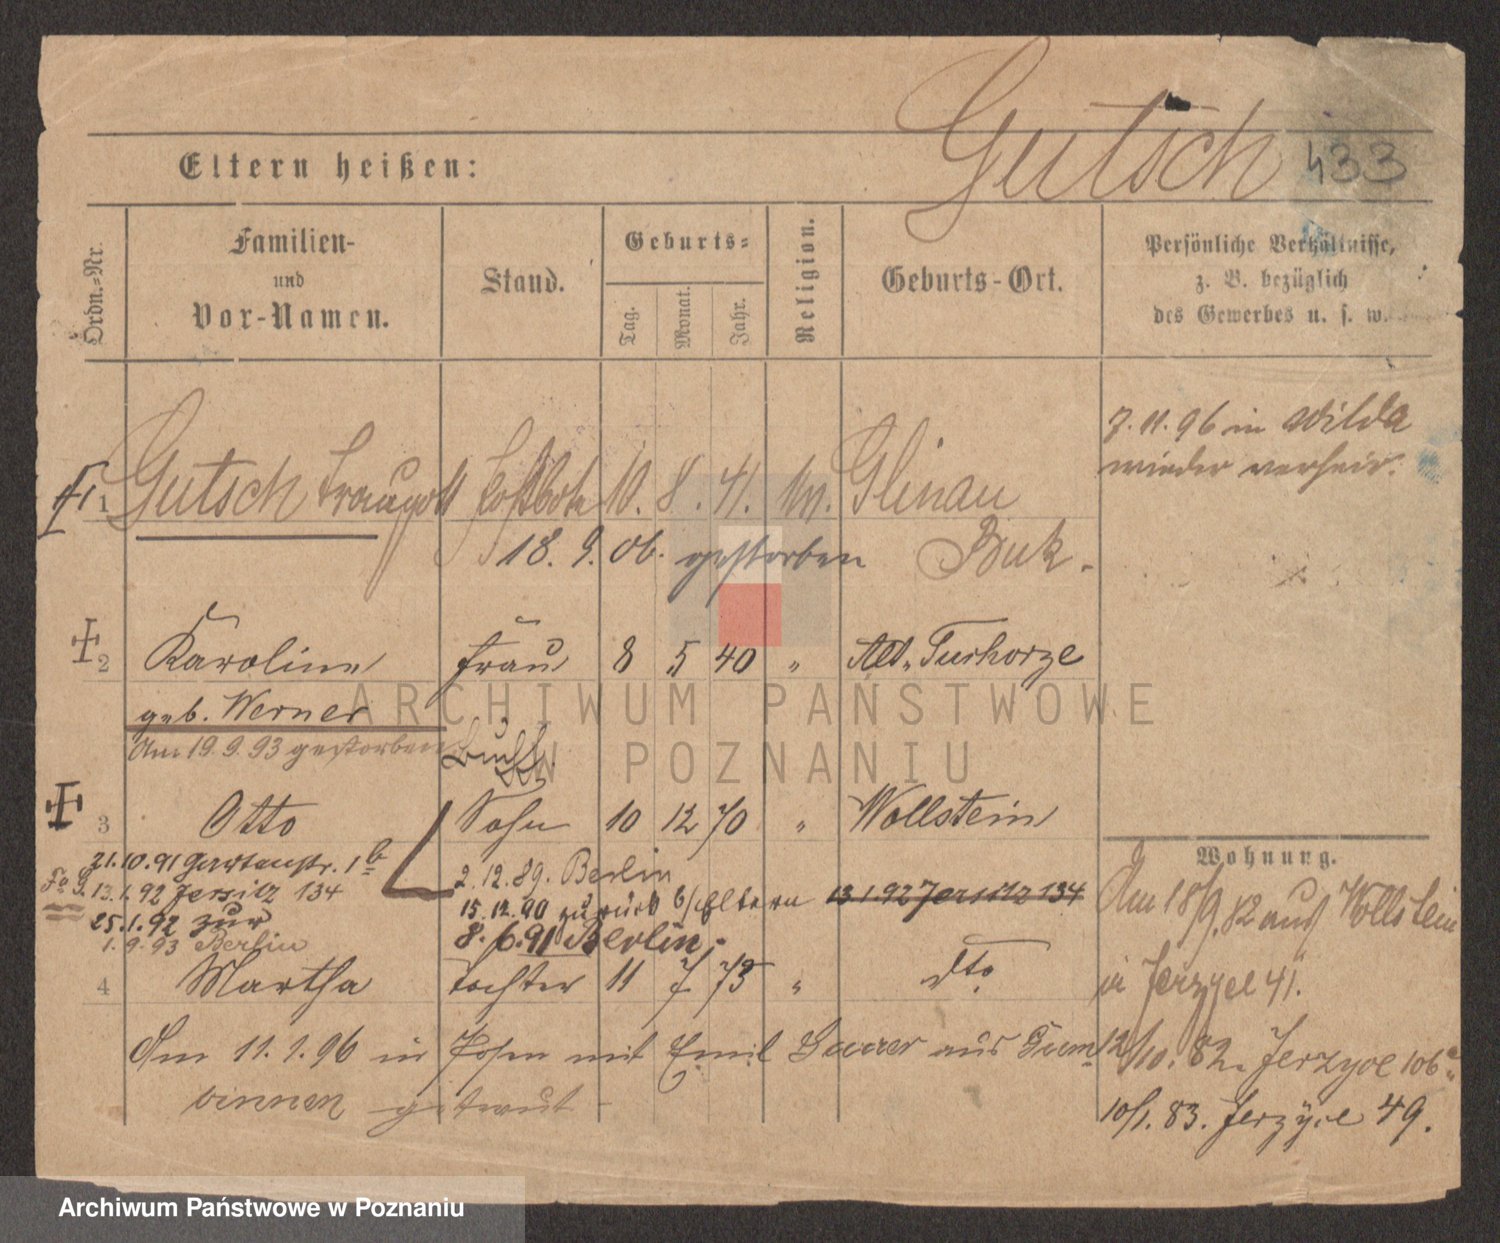 Gutsch 433
Eltern heißen:
Ordn.-Nr.
Familien-
und
Vor-Namen.
Stand.
Geburts-
Tag.
Monat.
Jahr.
Religion.
Geburts-Ort.
Persönliche Verhältnisse,
z. B. bezüglich
des Gewerbes u. s. w.
7. 11. 96 in Wilda
wieder verheir.
1 Gutsch Traugott Postbote 10. 8. 41. Glinau
18. 9. 06. gestorben Buk.
2 Karoline Frau 8 5 40 " Alt-Turhorze
geb. Werner
Am 19. 9. 93 gestorben
3 Otto Sohn 10 12 70 " Wollstein
21. 10. 91 Gartenstr. 1b
13. 1. 92 Jersitz 134
25. 1. 92 zur
1. 9. 93 Berlin
2. 12. 89. Berlin
15. 12. 90 zurück b/Eltern 13. 1. 92 Jersitz 134
8. 6. 91 Berlin.
4 Martha Tochter 11 7. 73 " dto.
Am 11. 1. 96 in Posen mit Emil aus Gum-
binnen getraut
Wohnung.
Am 18/9. 82 aus Wollstein
in Jerzyce 41.
12/10. 82. Jerzyce 106a
10/1. 83. Jerzyce 49.
ARCHIWUM PAŃSTWOWE
W POZNANIU
Archiwum Państwowe w Poznaniu